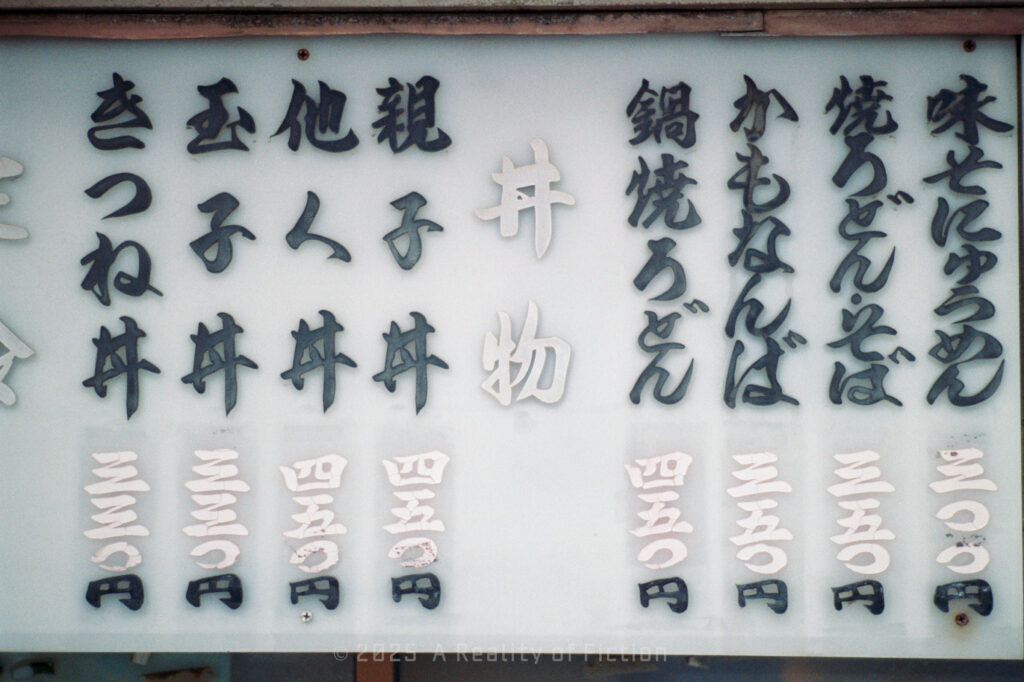 味せにゅうめん 三〇〇円
かもなんば 三五〇円
焼うどん・そば 三五〇円
鍋焼うどん 四五〇円
丼物
親子丼 四五〇円
他人丼 四五〇円
玉子丼 三三〇円
きつね丼 三三〇円
© 2025 A Reality of Fiction